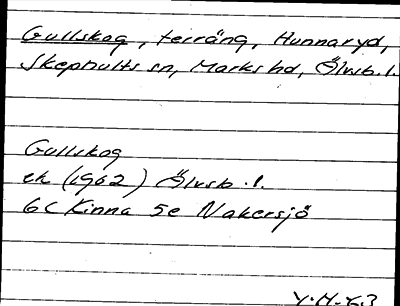 Gullskog, terräng, Hunnaryd,
Skephults sn, Marks hd, Älvsb. l.
Gullskog
ek (1962) Älvsb. l.
6C Kinna 5e Nakersjö